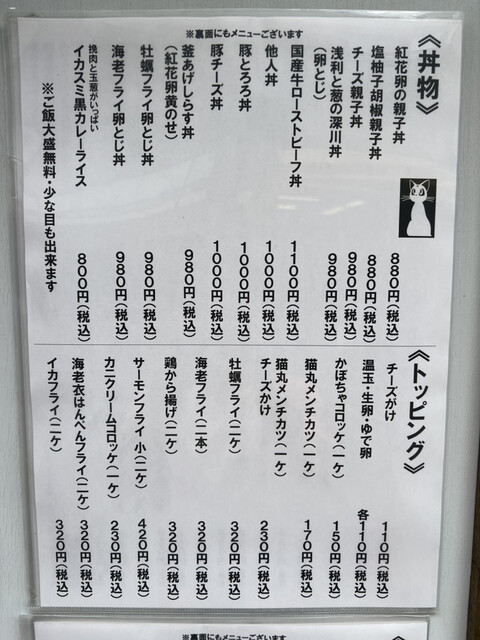 ※裏面にもメニューございます
《丼物》
紅花卵の親子丼 880円(税込)
塩柚子胡椒親子丼 880円(税込)
チーズ親子丼 980円(税込)
浅利と葱の深川丼 980円(税込)
(卵とじ)
国産牛ローストビーフ丼 1100円(税込)
他人丼 1000円(税込)
豚とろろ丼 1000円(税込)
豚チーズ丼 1000円(税込)
釜あげしらす丼 980円(税込)
(紅花卵黄のせ)
牡蠣フライ卵とじ丼 980円(税込)
海老フライ卵とじ丼 980円(税込)
挽肉と玉葱がいっぱい
イカスミ黒カレーライス 800円(税込)
※ご飯大盛無料・少な目も出来ます
《トッピング》
チーズがけ 110円(税込)
温玉・生卵・ゆで卵 各110円(税込)
かぼちゃコロッケ(一ケ) 150円(税込)
猫丸メンチカツ(一ケ) 170円(税込)
猫丸メンチカツ(一ケ)
チーズかけ 230円(税込)
牡蠣フライ(二ケ) 320円(税込)
海老フライ(二本) 320円(税込)
鶏から揚げ(二ケ) 320円(税込)
サーモンフライ小(二ケ) 420円(税込)
カニクリームコロッケ(一ケ) 230円(税込)
海老衣はんぺんフライ(二ケ) 320円(税込)
イカフライ(二ケ) 320円(税込)
※裏面にもメニューございます